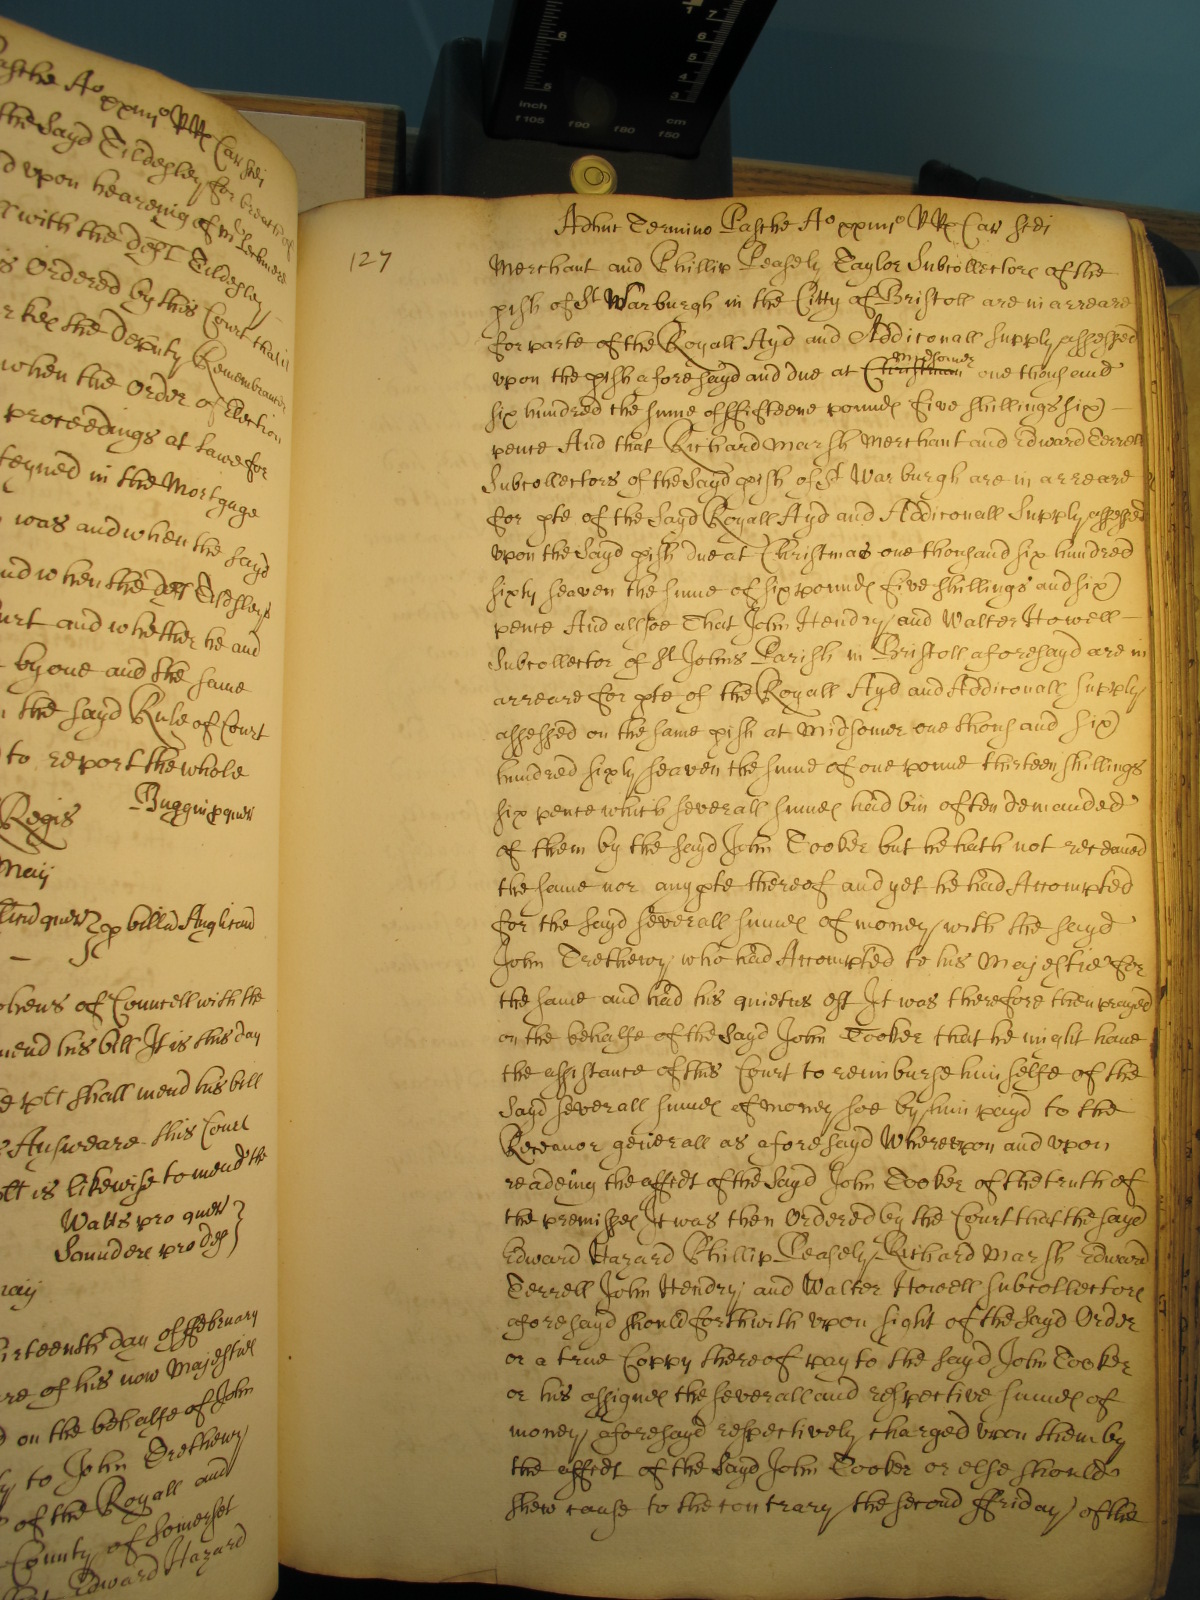 Pasche Ao xxiiijo RRx Car scdi
the Sayd Tildesley for breach of
d upon hearing of mr Lechmere
with the deft Tildesley
s Ordered by this Court that it
the deputy Remembrancer
when the Order of Election
proceedings at Lawe for
teyned in the Mortgage
was and when the sayd
nd when the deft Tildsleys
urt and whether he and
by one and the same
the sayd Rule of Court
to report the whole
Regis Buggin p quer
May
quer p billā Anglicană
phens of Councell with the
mend his bill It is this day
e plt shall mend his bill
Answeare this Court
plt is likewise to mend the
Watts pro quer
Saunders pro def
may
irteenth day of ffebruary
re of his now Majesties
d on the behalfe of John
y to John Trethewy
of the Royall and
County of Somerset
Edward Hazard
127
Adhuc Termino Pasche Ao xxiiijo RRx Car scdi
Merchant and Phillip Peasely Taylor Subcollectors of the
pish of St Warburgh in the Citty of Bristoll are in arreare
for parte of the Royall Ayd and Addiconall Supply assessed
vpon the pish aforesayd and due at Christmas midsomer one thousand
six hundred the sume of ffifteene pounds five shillings six
pence And that Richard Marsh Merchant and Edward Terrell
Subcollectors of the Sayd pish of St Warburgh are in arreare
for pte of the Sayd Royall Ayd and Addiconall Supply assessed
vpon the Sayd pish due at Christmas one thousand six hundred
sixty seaven the sume of six pounds five shillings and six
pence And allsoe That John Hendry and Walter Howell
Subcollector of St Johns Parish in Bristoll aforesayd are in
arreare for pte of the Royall Ayd and Addiconall supply
assessed on the same pish at Midsomer one thousand six
hundred sixty seaven the sume of one pound thirteen shillings
six pence which severall sumes had bin often demanded
of them by the sayd John Tooker but he hath not receaued
the same nor any pte thereof and yet he had Accompted
for the sayd severall sumes of money with the sayd
John Trethewy who had Accompted to his Majestie for
the same and had his quietus est It was therefore then prayed
on the behalfe of the Sayd John Tooker that he might haue
the assistance of this Court to reimburse himselfe of the
Sayd severall sumes of money soe by him payd to the
Receavor generall as aforesayd Wherevpon and vpon
readeing the affidt of the Sayd John Tooker of the truth of
the premisses It was then Ordered by the Court that the sayd
Edward Hazard Phillip Peasely Richard Marsh Edward
Terrell John Hendry and Walter Howell Subcollectors
aforesayd should forthwith vpon sight of the Sayd Order
or a true Coppy thereof pay to the Sayd John Tooker
or his assignes the severall and respective sumes of
money aforesayd respectively charged vpon them by
the affidt of the Sayd John Tooker or else should
shew cause to the contrary the second ffriday of the
inch
cm
f105 f90 f80 f50